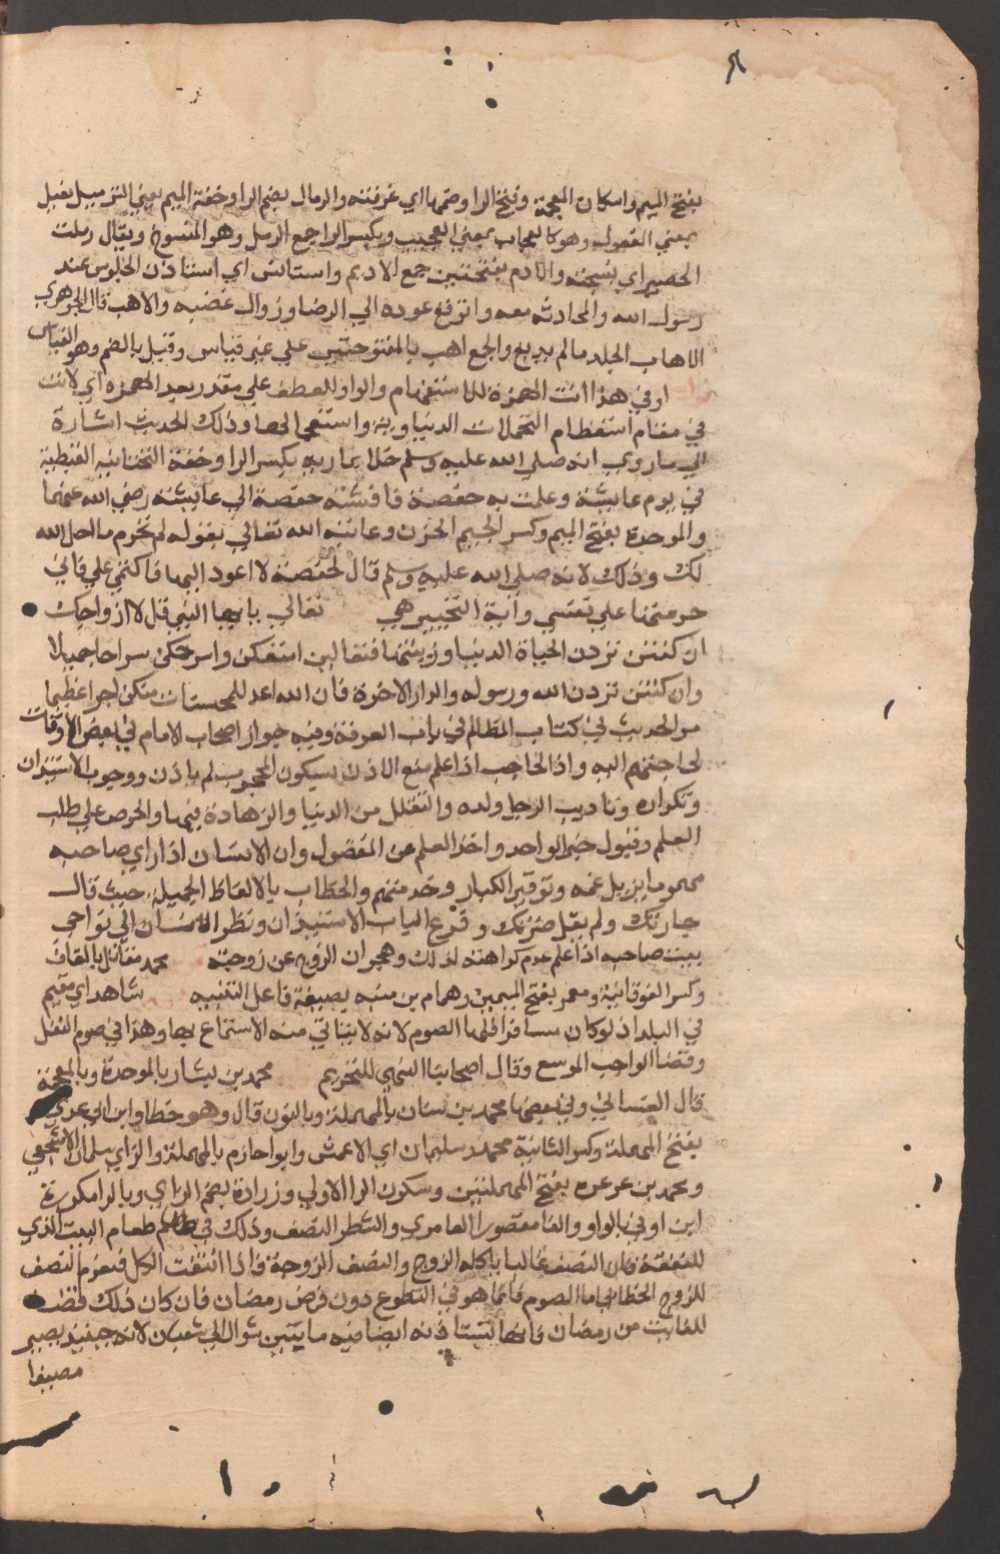 بفتح الميم واسكان المعجمة وفتح الرا وضمها اي غرفته والرمال بضم الرا وخفة الميم يعني الترميل فعيل
بمعني المفعول وهو كالعجاب بمعني العجيب وبكسر الرا جمع الرمل وهو المنسوج ويقال رملت
الحصير اي نسجته والادم بفتحتين جمع الاديم واستانس اي استاذن الجلوس عند
رسول الله والمحادثه معه واتوقع عوده الي الرضا وزوال غضبه والاهب قال الجوهري
الاهاب الجلد مالم يدبغ والجمع اهب بالمفتوحتين علي غير قياس وقيل بالضم وهو القياس
اوفي هذا انت الهمزة للاستفهام والواو للعطف علي مقدر بعد الهمزه اي لانت
في مقام استعظام التجملات الدنياوية واستعجالها وذلك الحديث اشارة
الي ماروي انه صلي الله عليه وسلم خلا بمارية بكسر الرا وخفة التحتانيه القبطية
في يوم عايشة وعلمت به حفصة فافشته حفصة الي عايشة رضي الله عنهما
والموجدة بفتح الميم وكسر الجيم الحزن وعاتبه الله تعالي بقوله لم تحرم ما احل الله
لك وذلك لانه صلي الله عليه وسلم قال لحفصة لا اعود اليها فاكتمي علي فاني
حرمتها علي نفسي واية التخيير هي تعالي يا ايها النبي قل لازواجك
ان كنتن تردن الحياة الدنيا وزينتها فتعالين امتعكن واسرحكن سراحا جميلا
وان كنتن تردن الله ورسوله والدار الاخرة فان الله اعد للمحسنات منكن اجرا عظيما
مر الحديث في كتاب المظالم في باب الغرفة وفيه جواز اصحاب الامام في بعض الاوقات
لحاجتهم اليه واذ الحاجب اذا علم منع الاذن بسكون المحجوب لم ياذن ووجوب الاستيذان
وتكراره وتاديب الرجل ولده والتقلل من الدنيا والزهادة فيها والحرص علي طلب
العلم وقبول خبر الواحد واخذ العلم عن المفضول وان الانسان اذا راي صاحبه
مهموما يزيل غمه وتوقير الكبار وخدمتهم والخطاب بالالفاظ الجميلة حيث قال
جارتك ولم يقل ضرتك وقرع الباب للاستيذان ونظر الانسان الي نواحي
بيت صاحبه اذا علم عدم كراهته لذلك وهجران الزوج عن زوجته محمد بن مقاتل بالقاف
وكسر الفوقانية ومعمر بفتح الميمين وهمام بن منبه بصيغة فاعل التنبيه شاهد اي مقيم
في البلد اذ لو كان مسافرا فلها الصوم لانه لا يتاتي منه الاستمتاع بها وهذا في صوم النفل
وقضا الواجب الموسع وقال اصحابنا النهي للتحريم محمد بن بشار بالموحدة وبالمعجمة
قال الغساني وفي بعضها محمد بن سنان بالمهملة وبالنون قال وهو خطا وابن ابي عدي
بفتح المهملة وكسر الثانية محمد وسليمان اي الاعمش وابو حازم بالمهملة والزاي سلمان الاشجعي
ومحمد بن عرعره بفتح المهملتين وسكون الرا الاولي وزرارة بضم الزاي وبالرا مكررة
ابن اوفي بالواو والفا مقصورا العامري والشطر النصف وذلك في طعام البيت الذي
للنفقة فان النصف غالبا ياكله الزوج والنصف الزوجة فاذا انفقت الكل فتغرم النصف
للزوج الخطابي اما الصوم فانما هو في التطوع دون فرض رمضان فان كان ذلك قضا
للفايت من رمضان فانها تستاذنه ايضا فيه ما بين شوال الي شعبان لانه حينيذ يصير
مضيقا